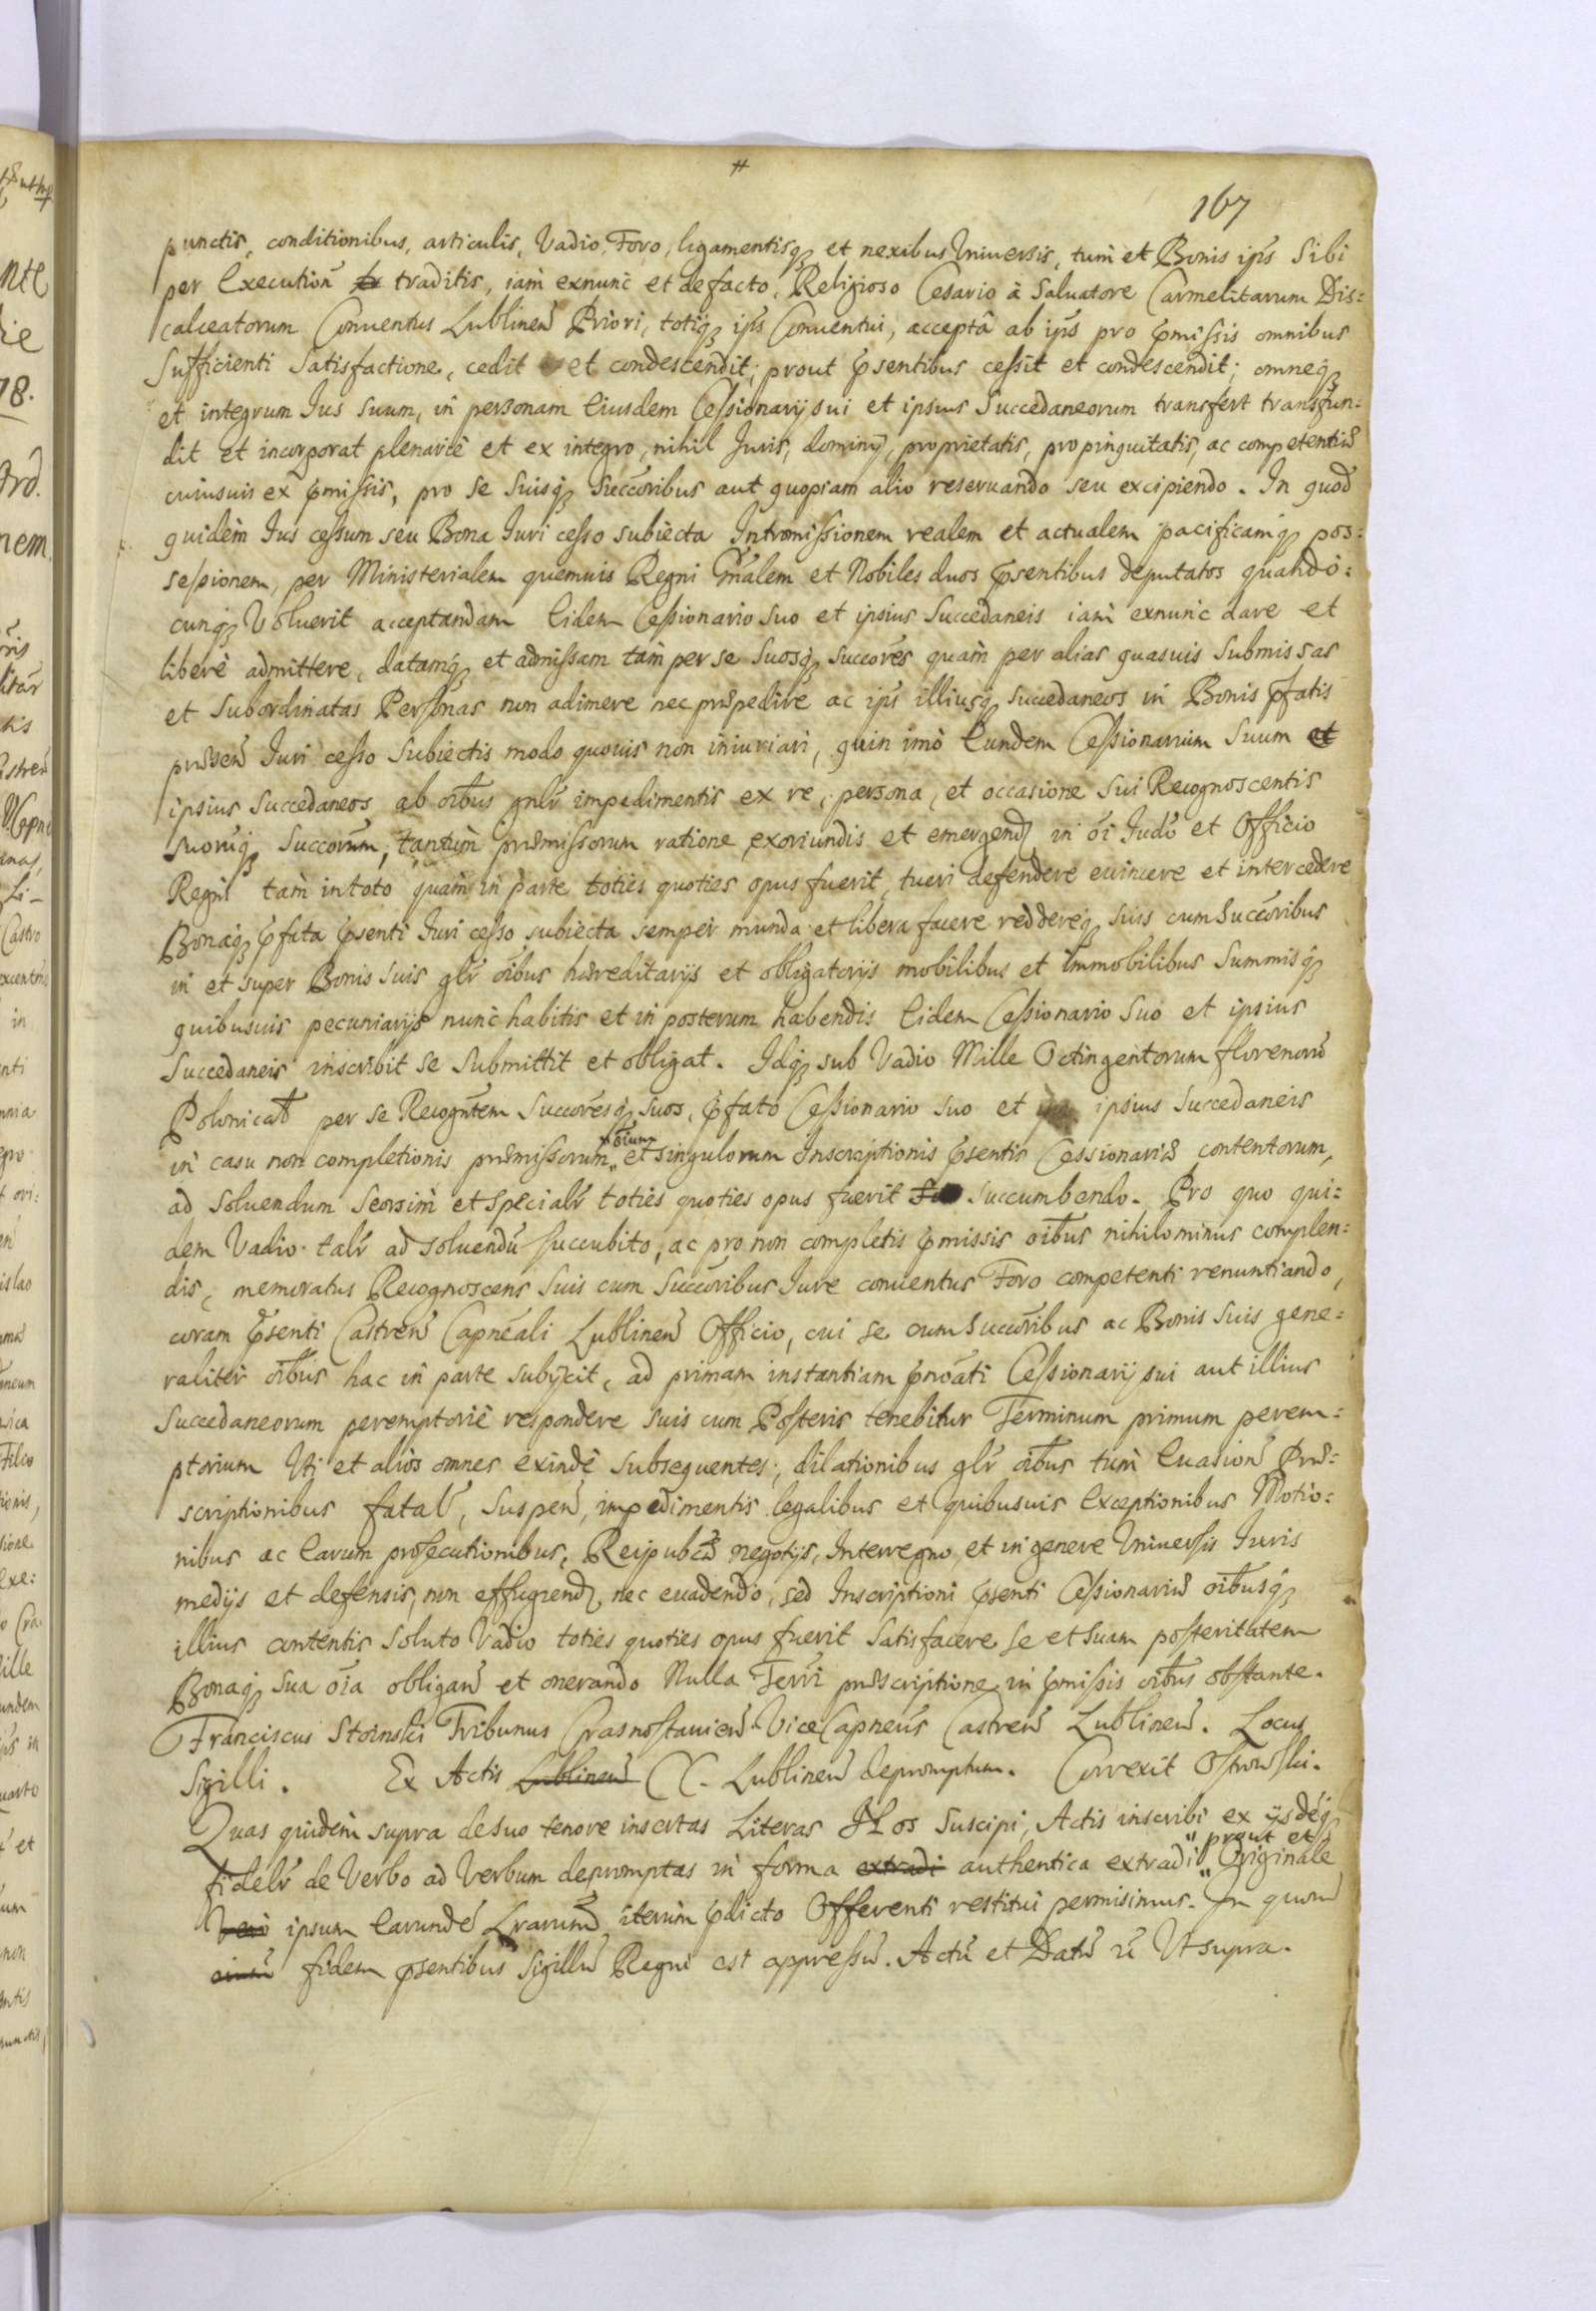 #
167
punctis, conditionibus, articulis, Vadio, Foro, ligamentisq₃ et nexibus Vniuersis, tum et Bonis ip̃s Sibi
per Execution̄ tr traditis, iam exnunc et defacto, Religioso Cesario à Saluatore Carmelitarum Dis:
calceatorum Conuentus Lublinen̄ Priori, totiq₃ ip̃s Conuentui, acceptâ ab ip̃s pro p̄missis omnibus
Sufficienti Satisfactione, cedit et condescendit; prout p̄sentibus cessit et condescendit; omneq₃
et integrum Ius suum, in personam Eiusdem Cessionarij sui et ipsius Succedaneorum transfert transfun:
dit et incorporat plenariè et ex integro, nihil Juris, dominij, proprietatis, propinquitatis, ac competentiæ
cuiusuis ex p̄missis, pro se Suisq₃ Succ̄oribus aut quopiam alio reseruando seu excipiendo. In quod
quidem Ius cessum seu Bona Iuri cesso subiecta Intromissionem realem et actualem pacificamq₃ pos:
sessionem, per Ministerialem quemuis Regni Gn̄ralem et Nobiles duos p̄sentibus deputatos quando:
cunq₃ Voluerit acceptandam Eidem Cessionario Suo et ipsius Succedaneis iam exnunc dare et
liberè admittere, datamq₃ et admissam tam per se Suosq₃ succōres quàm per alias quasuis Submissas
et Subordinatas Personas non adimere nec præpedire ac ip̃s illiusq₃ succedaneos in Bonis p̄fatis
præsen̄ Iuri cesso Subiectis modo quouis non iniuriari, quin imò Eundem Cessionarium Suum et
ipsius Succedaneos ab oībus gn̄lr impedimentis ex re, persona, et occasione Sui Recognoscentis
suorūq₃ Succōrum, tantùm præmissorum ratione exoriundis et emergend, in oī Iudō et Officio
Regni tàm in toto quàm in parte toties quoties opus fuerit, tueri defendere euincere et intercedere
Bonaq₃ p̄fata p̄senti Iuri cesso subiecta semper munda et libera facere reddereq₃ suis cum Succōribus
in et super Bonis Suis glr oībus hæreditarijs et obligatorijs mobilibus et immobilibus Summisq₃
quibusuis pecuniarijs nunc habitis et in posterum habendis Eidem Cessionario Suo et ipsius
Succedaneis inscribit se Submittit et obligat. Idq₃ sub Vadio Mille Octingentorum florenorū
Polonicał per se Recogn̄tem Succōresq₃ suos, p̄fato Cessionario suo et ipsius Succedaneis
in casu non completionis præmissorum " oīum et singulorum Inscriptionis p̄sentis Cessionariæ contentorum,
ad soluendum Seorsim et specialr toties quoties opus fuerit succumbendo. Pro quo qui:
dem Vadio talr ad soluendū succubito, ac pro non completis p̄missis oībus nihilominus complen:
dis, memoratus Recognoscens Suis cum Succōribus Iure conuentus Foro competenti renuntiando,
coram p̄senti Castren̄ Capnēali Lublinen̄ Officio, cui se cum Succōribus ac Bonis Suis gene:
raliter oībus hac in parte subijcit, ad primam instantiam p̄noāti Cessionarij sui aut illius
Succedaneorum peremptoriè respondere suis cum Posteris tenebitur Terminum primum perem:
ptorium Vti et alios omnes exinde Subsequentes; dilationibus glr oībus tum Euasion̄ Præ:
scriptionibus fatał, Suspen̄, impedimentis legalibus et quibusuis Exceptionibus Motio:
nibus ac Earum prosecutionibus, Reipubcæ negotijs, Interregno, et in genere Vniuersis Iuris
medijs et defensis, non effugiend, nec euadendo, sed Inscriptioni p̄senti Cessionariæ oībusq₃
illius contentis Soluto Vadio toties quoties opus fuerit Satisfacere se et Suam posteritatem
Bonaq₃ Sua oīa obligan̄ et onerando Nulla Terrī præscriptione in p̄missis oībus obstante.
Franciscus Stoinski Tribunus Crasnostauien̄ ViceCapneūs Castren̄ Lublinen̄. Locus
Sigilli. Ex Actis Lublinen̄ CC. Lublinen̄ depromptum. Correxit Ostrowski.
Quas quidem supra de suo tenore insertas Literas Nos Suscipi, Actis inscribi ex ijsdēq₃
fidelr de Verbo ad Verbum depromptas in forma extradi authentica extradi " prout et Originale
Vero ipsum Earundē Lrarum iterùm p̄dicto Offerenti restitui permisimus. In quorū
fidem p̄sentibus Sigillū Regni est appressū. Actū et Datū uī Vtsupra.